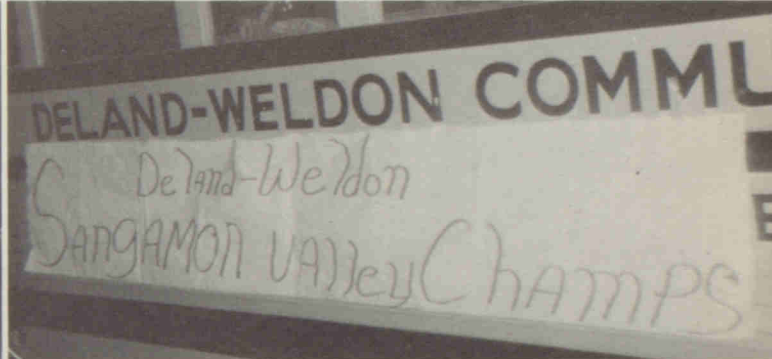 DELAND-WELDON COMMU
Deland-Weldon
SANgAMON VAlley ChAmPS